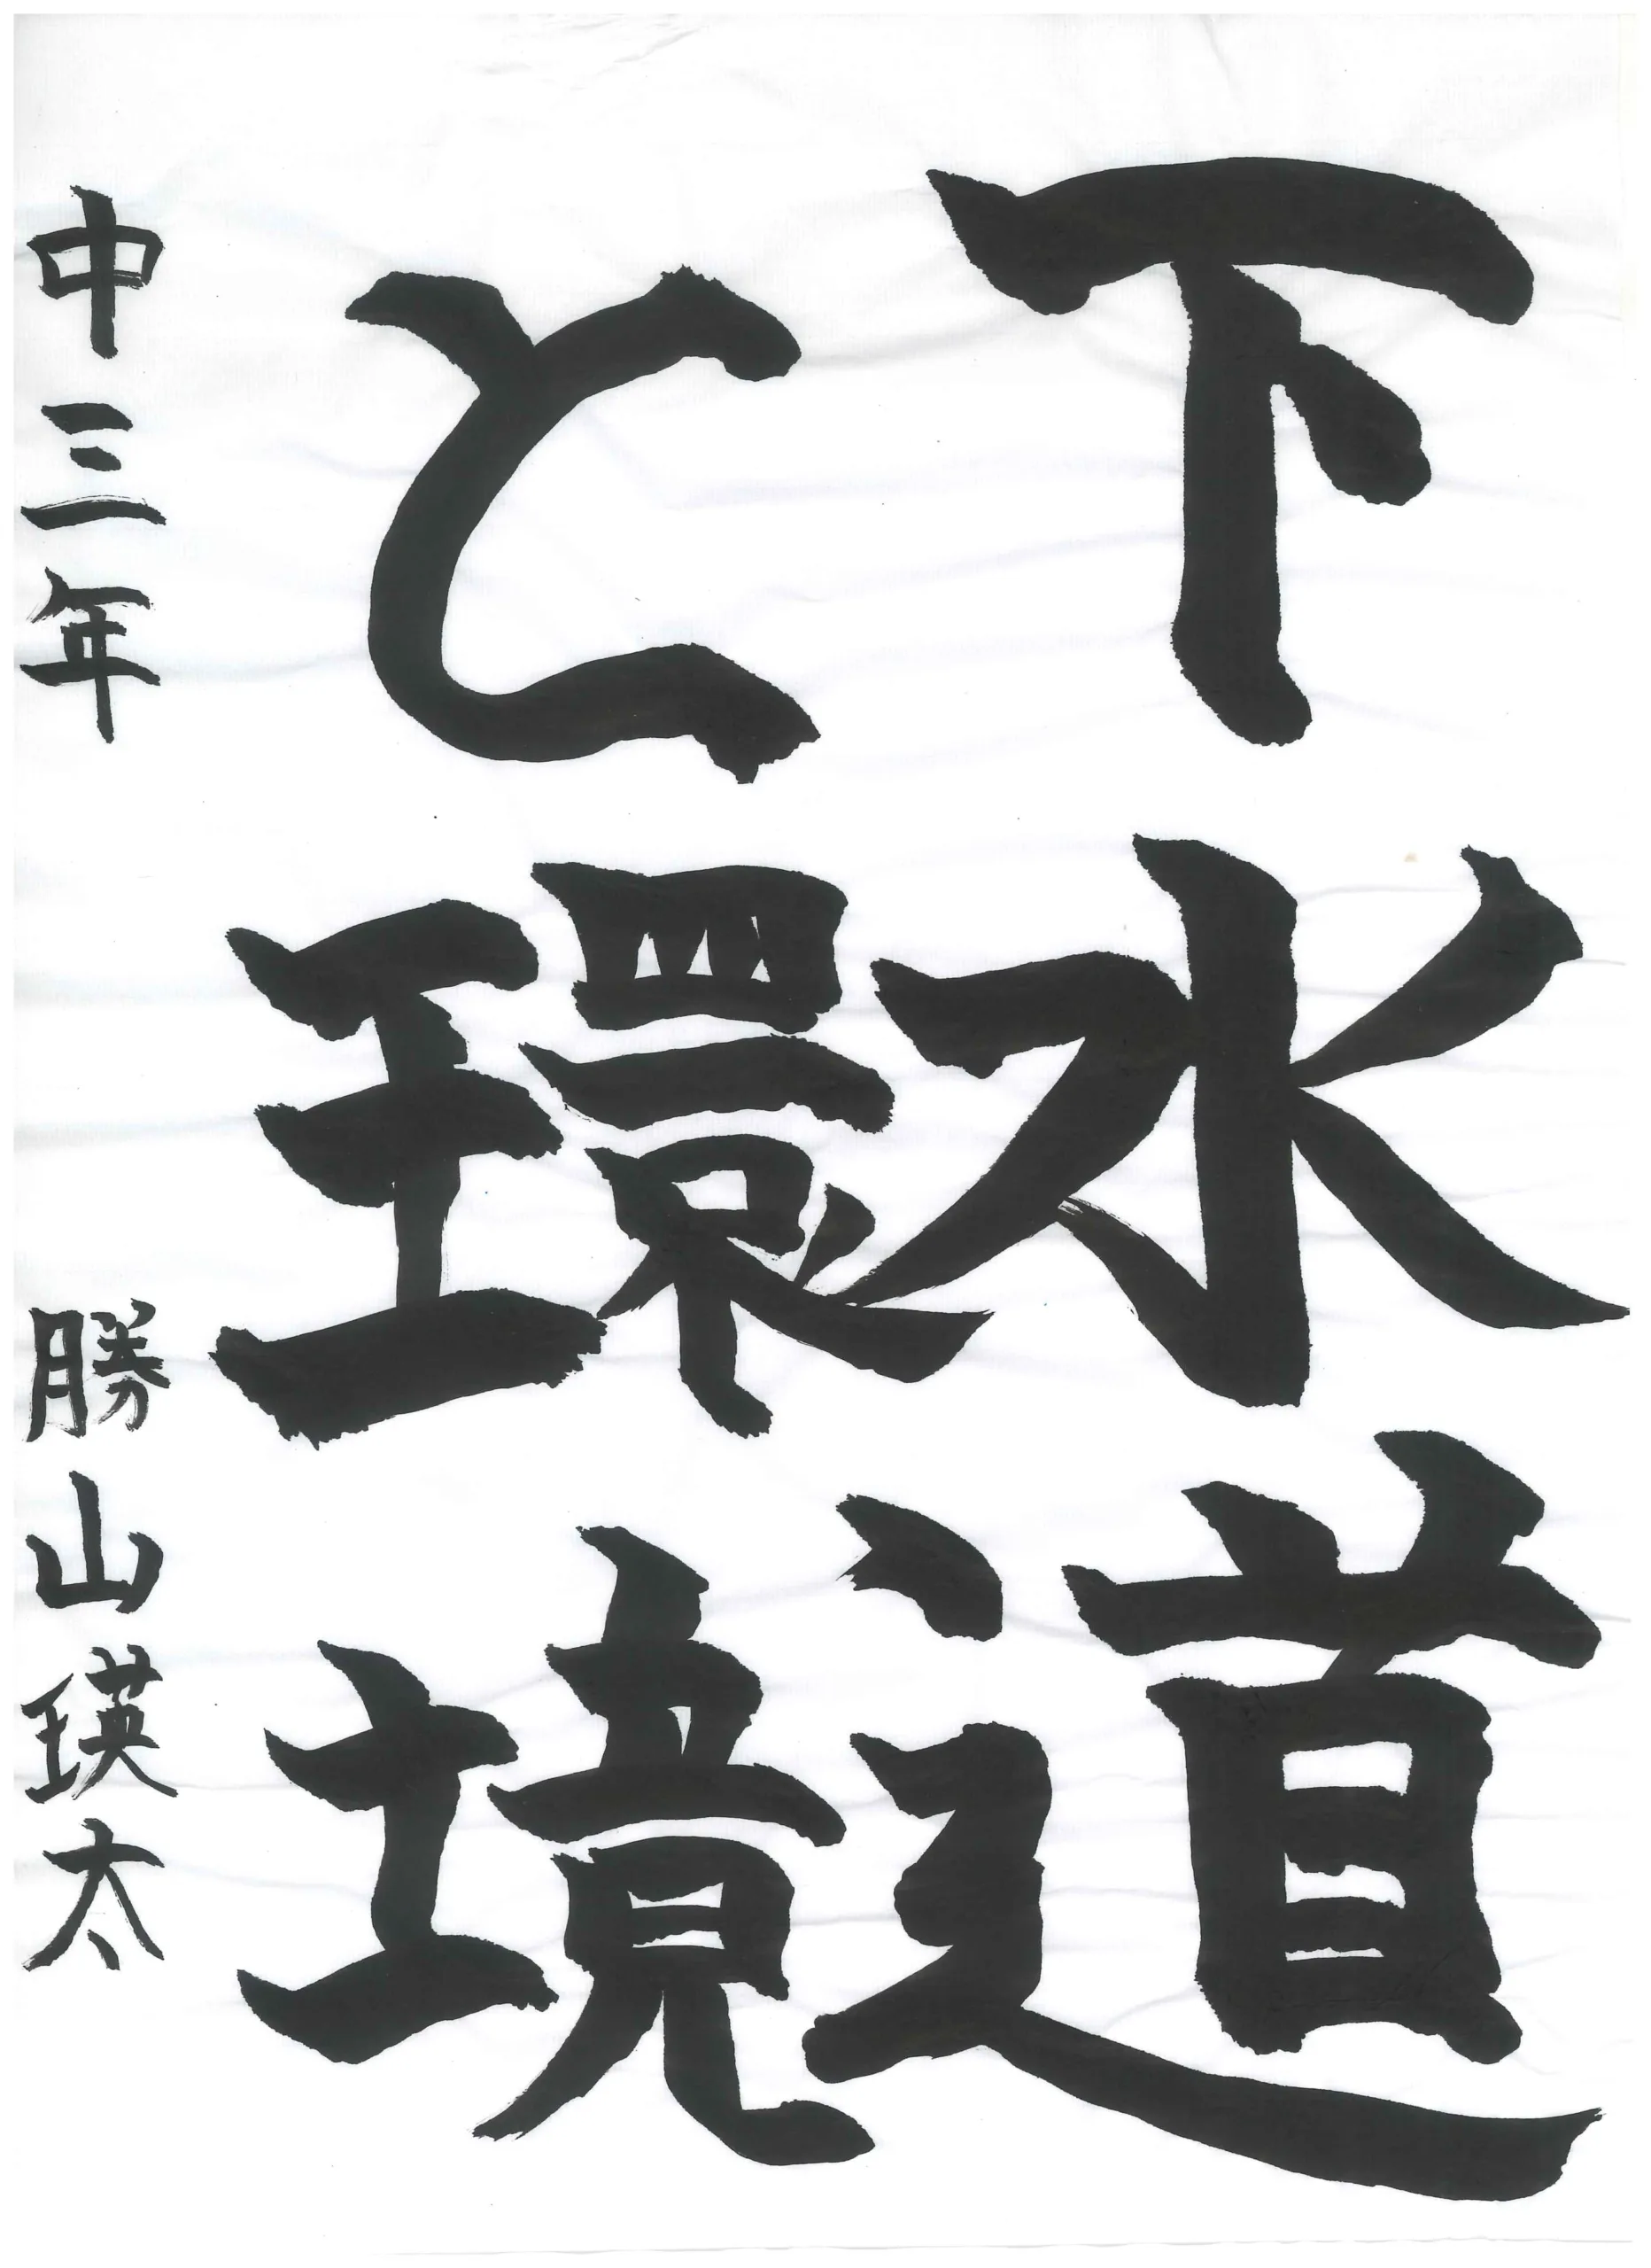 下水道
と環境
中三年 勝山瑛太